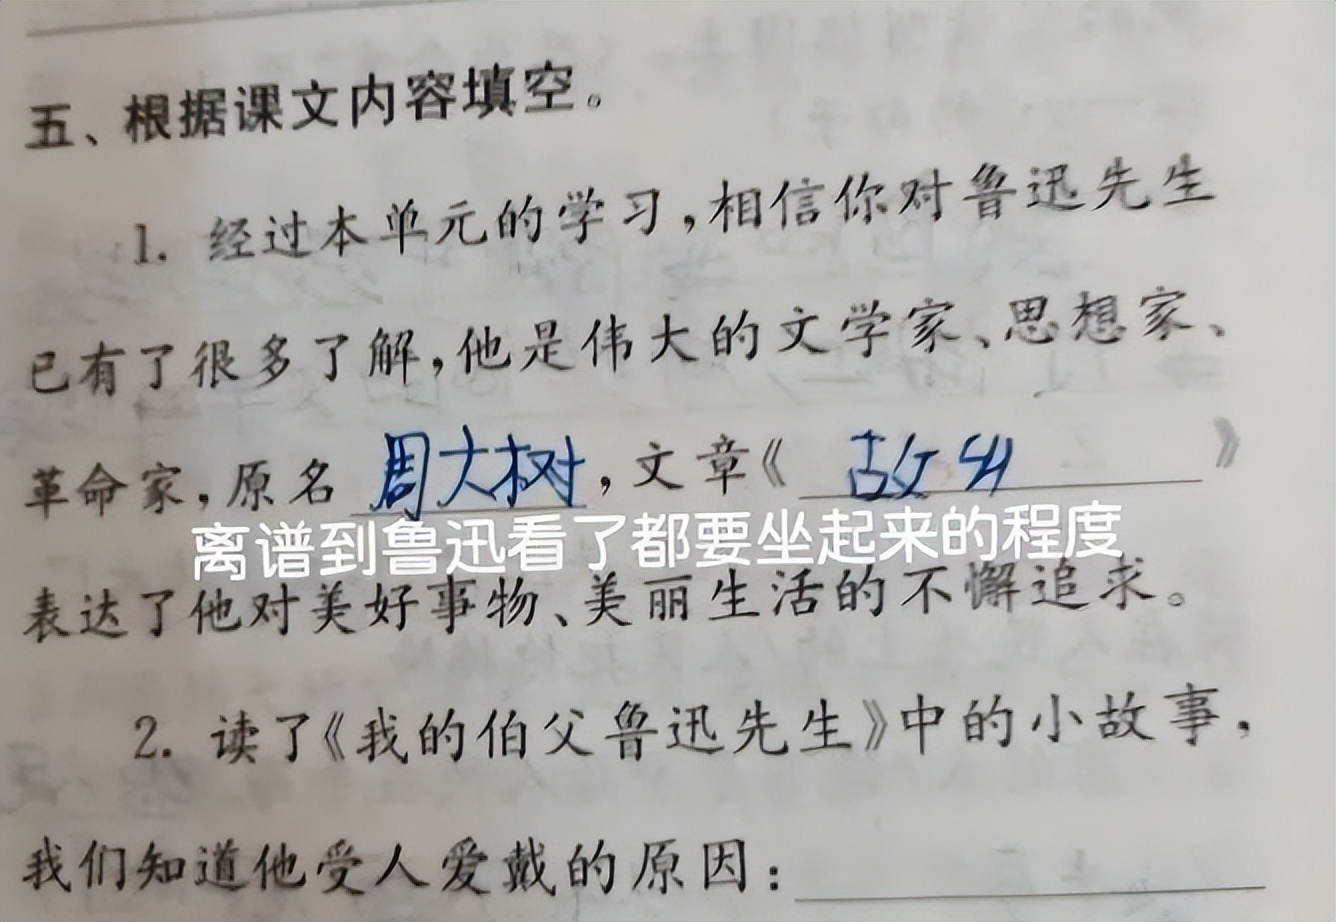 五、根据课文内容填空。
1. 经过本单元的学习,相信你对鲁迅先生
已有了很多了解,他是伟大的文学家、思想家、
革命家,原名周大树,文章《故乡》
离谱到鲁迅看了都要坐起来的程度
表达了他对美好事物、美丽生活的不懈追求。
2. 读了《我的伯父鲁迅先生》中的小故事,
我们知道他受人爱戴的原因: